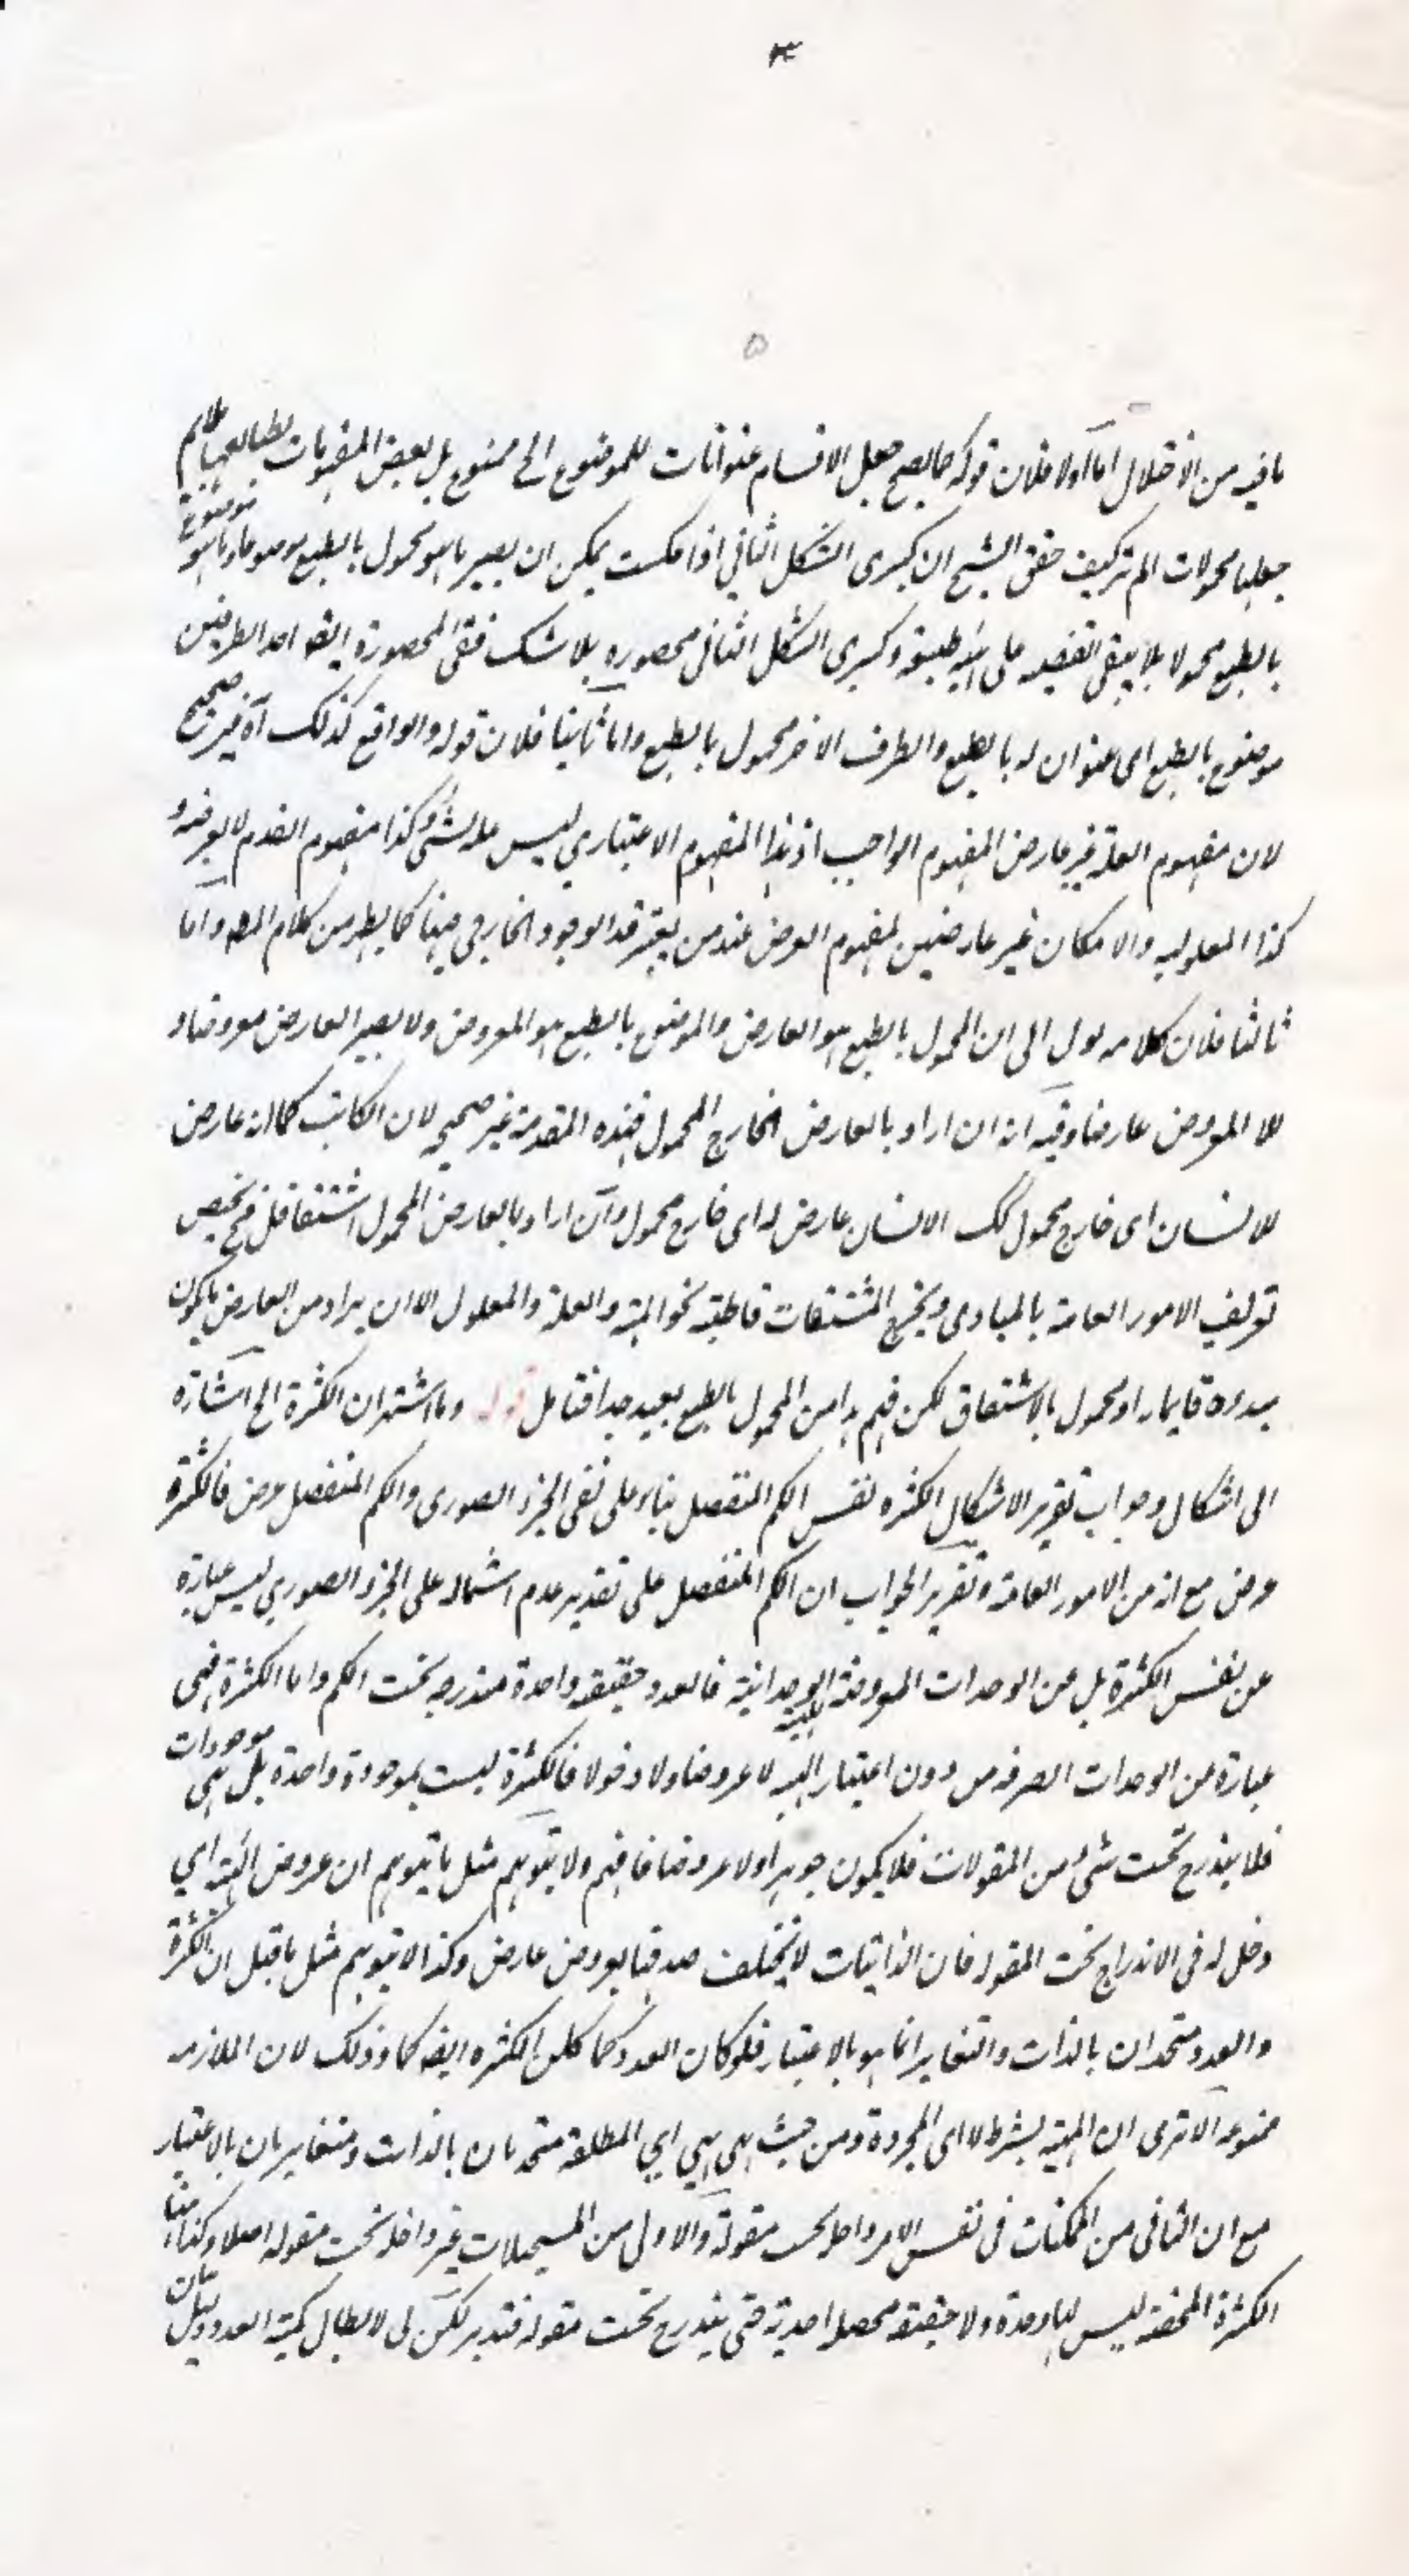 ٤
٥
ما فيه من الاختلال اما اولا فلان قوله كما يصح جعل الاقسام عنوانات للموضوع الخ ممنوع بل بعض المفهومات بطبائعها
جعلها محمولات الم تر كيف حقق الشيخ ان كبرى الشكل الثاني اذا عكست يمكن ان يصير ما هو محمول بالطبع موضوعا وما هو موضوع
بالطبع محمولا فلا يبقى القضية على هيئة طبيعية وكبرى الشكل الثاني محصورة بلا شك ففي المحصورة ايضا احد الطرفين
موضوع بالطبع اى عنوان له بالطبع والطرف الاخر محمول بالطبع واما ثانيا فلان قوله والواقع كذلك آه غير صحيح
لان مفهوم العلة غير عارض المفهوم الواجب اذ هذا المفهوم الاعتباري ليس علة لشئ وكذا مفهوم القدم لا يعرضه و
كذا المعلولية والامكان غير عارضين لمفهوم العرض عند من يعتبر قيد الوجود الخارجي فيها كما يظهر من كلام المصه واما
ثالثا فلان كلامه يؤل الى ان المحمول بالطبع هو العارض والموضوع بالطبع هو المعروض ولا يصير العارض معروضا و
لا المعروض عارضا وفيه انه ان اراد بالعارض الخارج المحمول فهذه المقدمة غير صحيحه لان الكاتب كما انه عارض
للانسان اى خارج محمول كك الانسان عارض له اى خارج محمول وان اراد بالعارض المحمول اشتقاقا فح يختص
تعريف الامور العامة بالمبادى ويخرج المشتقات قاطبة نحو الهية والعلة والمعلول الا ان يراد من العارض ما يكون
مبدءه قايما او محمول بالاشتقاق لكن فهم هذا من المحمول بالطبع بعيد جدا فتامل قوله وما اشتهر ان الكثرة الخ اشارة
الى اشكال وجواب تقرير الاشكال الكثرة نفس الكم المنفصل بناء على نفى الجزء الصورى والكم المنفصل عرض فالكثرة
عرض مع انه من الامور العامة وتقرير الجواب ان الكم المنفصل على تقدير عدم اشتماله على الجزء الصوري ليس عبارة
عن نفس الكثرة بل عن الوحدات المعروضة للهيئة الوحدانية فالعدد حقيقة واحدة مندرجه تحت الكم واما الكثرة فهى
عبارة من الوحدات الصرفه من دون اعتبار الهيئة لا عروضا ولا دخولا فالكثرة ليست بموجودة واحدة بل هي موجودات
فلا يندرج تحت شئ من المقولات فلا يكون جوهرا ولا عرضا فافهم ولا يتوهم مثل ما يتوهم ان عروض الهيئة اي
دخل له فى الاندراج تحت المقوله فان الذاتيات لا يختلف صدقها بعروض عارض وكذا لا يتوهم مثل ما قيل ان الكثرة
والعدد متحدان بالذات والتغاير انما هو بالاعتبار فلو كان العدد كما كان الكثرة ايضا كما وذلك لان الملازمة
ممنوعه الا ترى ان المهية بشرط لا اى المجردة ومن حيث هى هي اي المطلقة متحدتان بالذات ومتغايرتان بالاعتبار
مع ان الثانى من الممكنات فى نفس الامر داخل تحت مقولة والاولى من المستحيلات غير داخلة تحت مقوله اصلا وكذا هنا
الكثرة المحضة ليس لها وحدة ولا حقيقة محصلة احدية حتى يندرج تحت مقوله فتدبر لكن لى لابطال كمية العدد دليلان